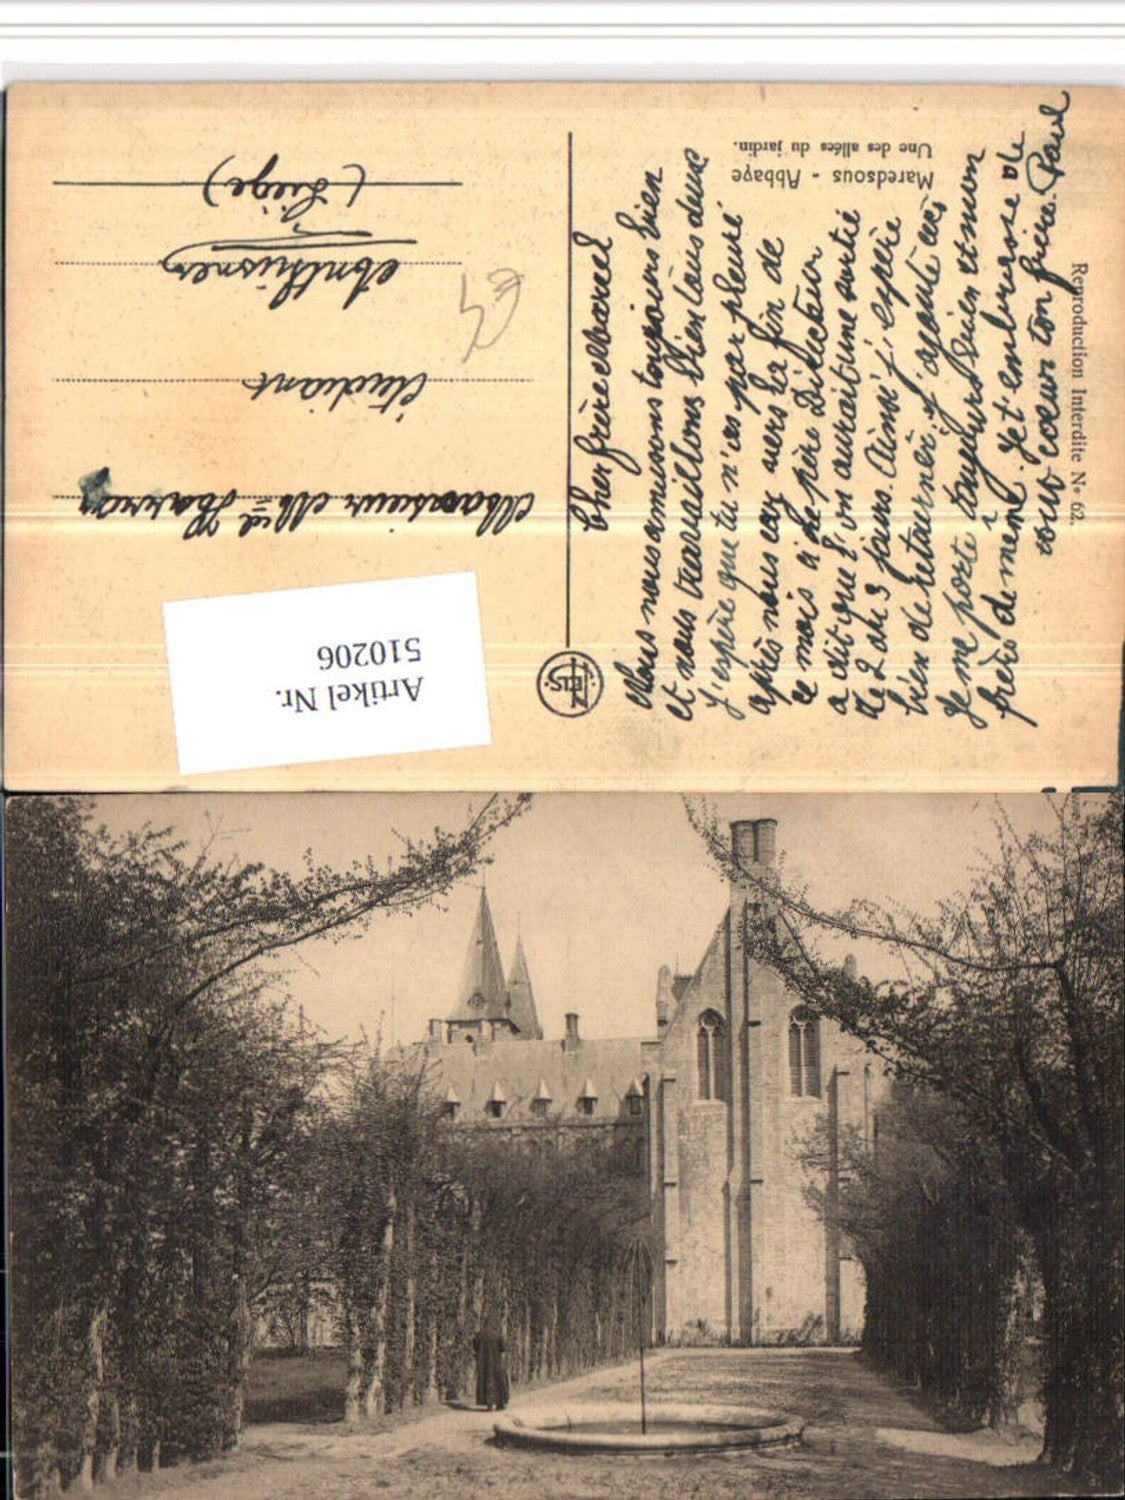 Maredsous - Abbaye
Une des allées du jardin.
Reproduction Interdite Nº 62.
Cher frère Marcel
Nous nous amusons toujours bien
et nous travaillons bien tous deux
J'espère que tu n'as pas pleuré
après nous car vers la fin de
ce mois ci le père Directeur
a dit que l'on aurait une sortie
de 2 ou 3 jours. Ainsi j'espère
bien de retourner.
Je me porte toujours bien et mon
frère de même. Je t'embrasse de
tout cœur ton frère. Paul
Monsieur
Étudiant
Anthisnes
(Liège)
Artikel Nr.
510206